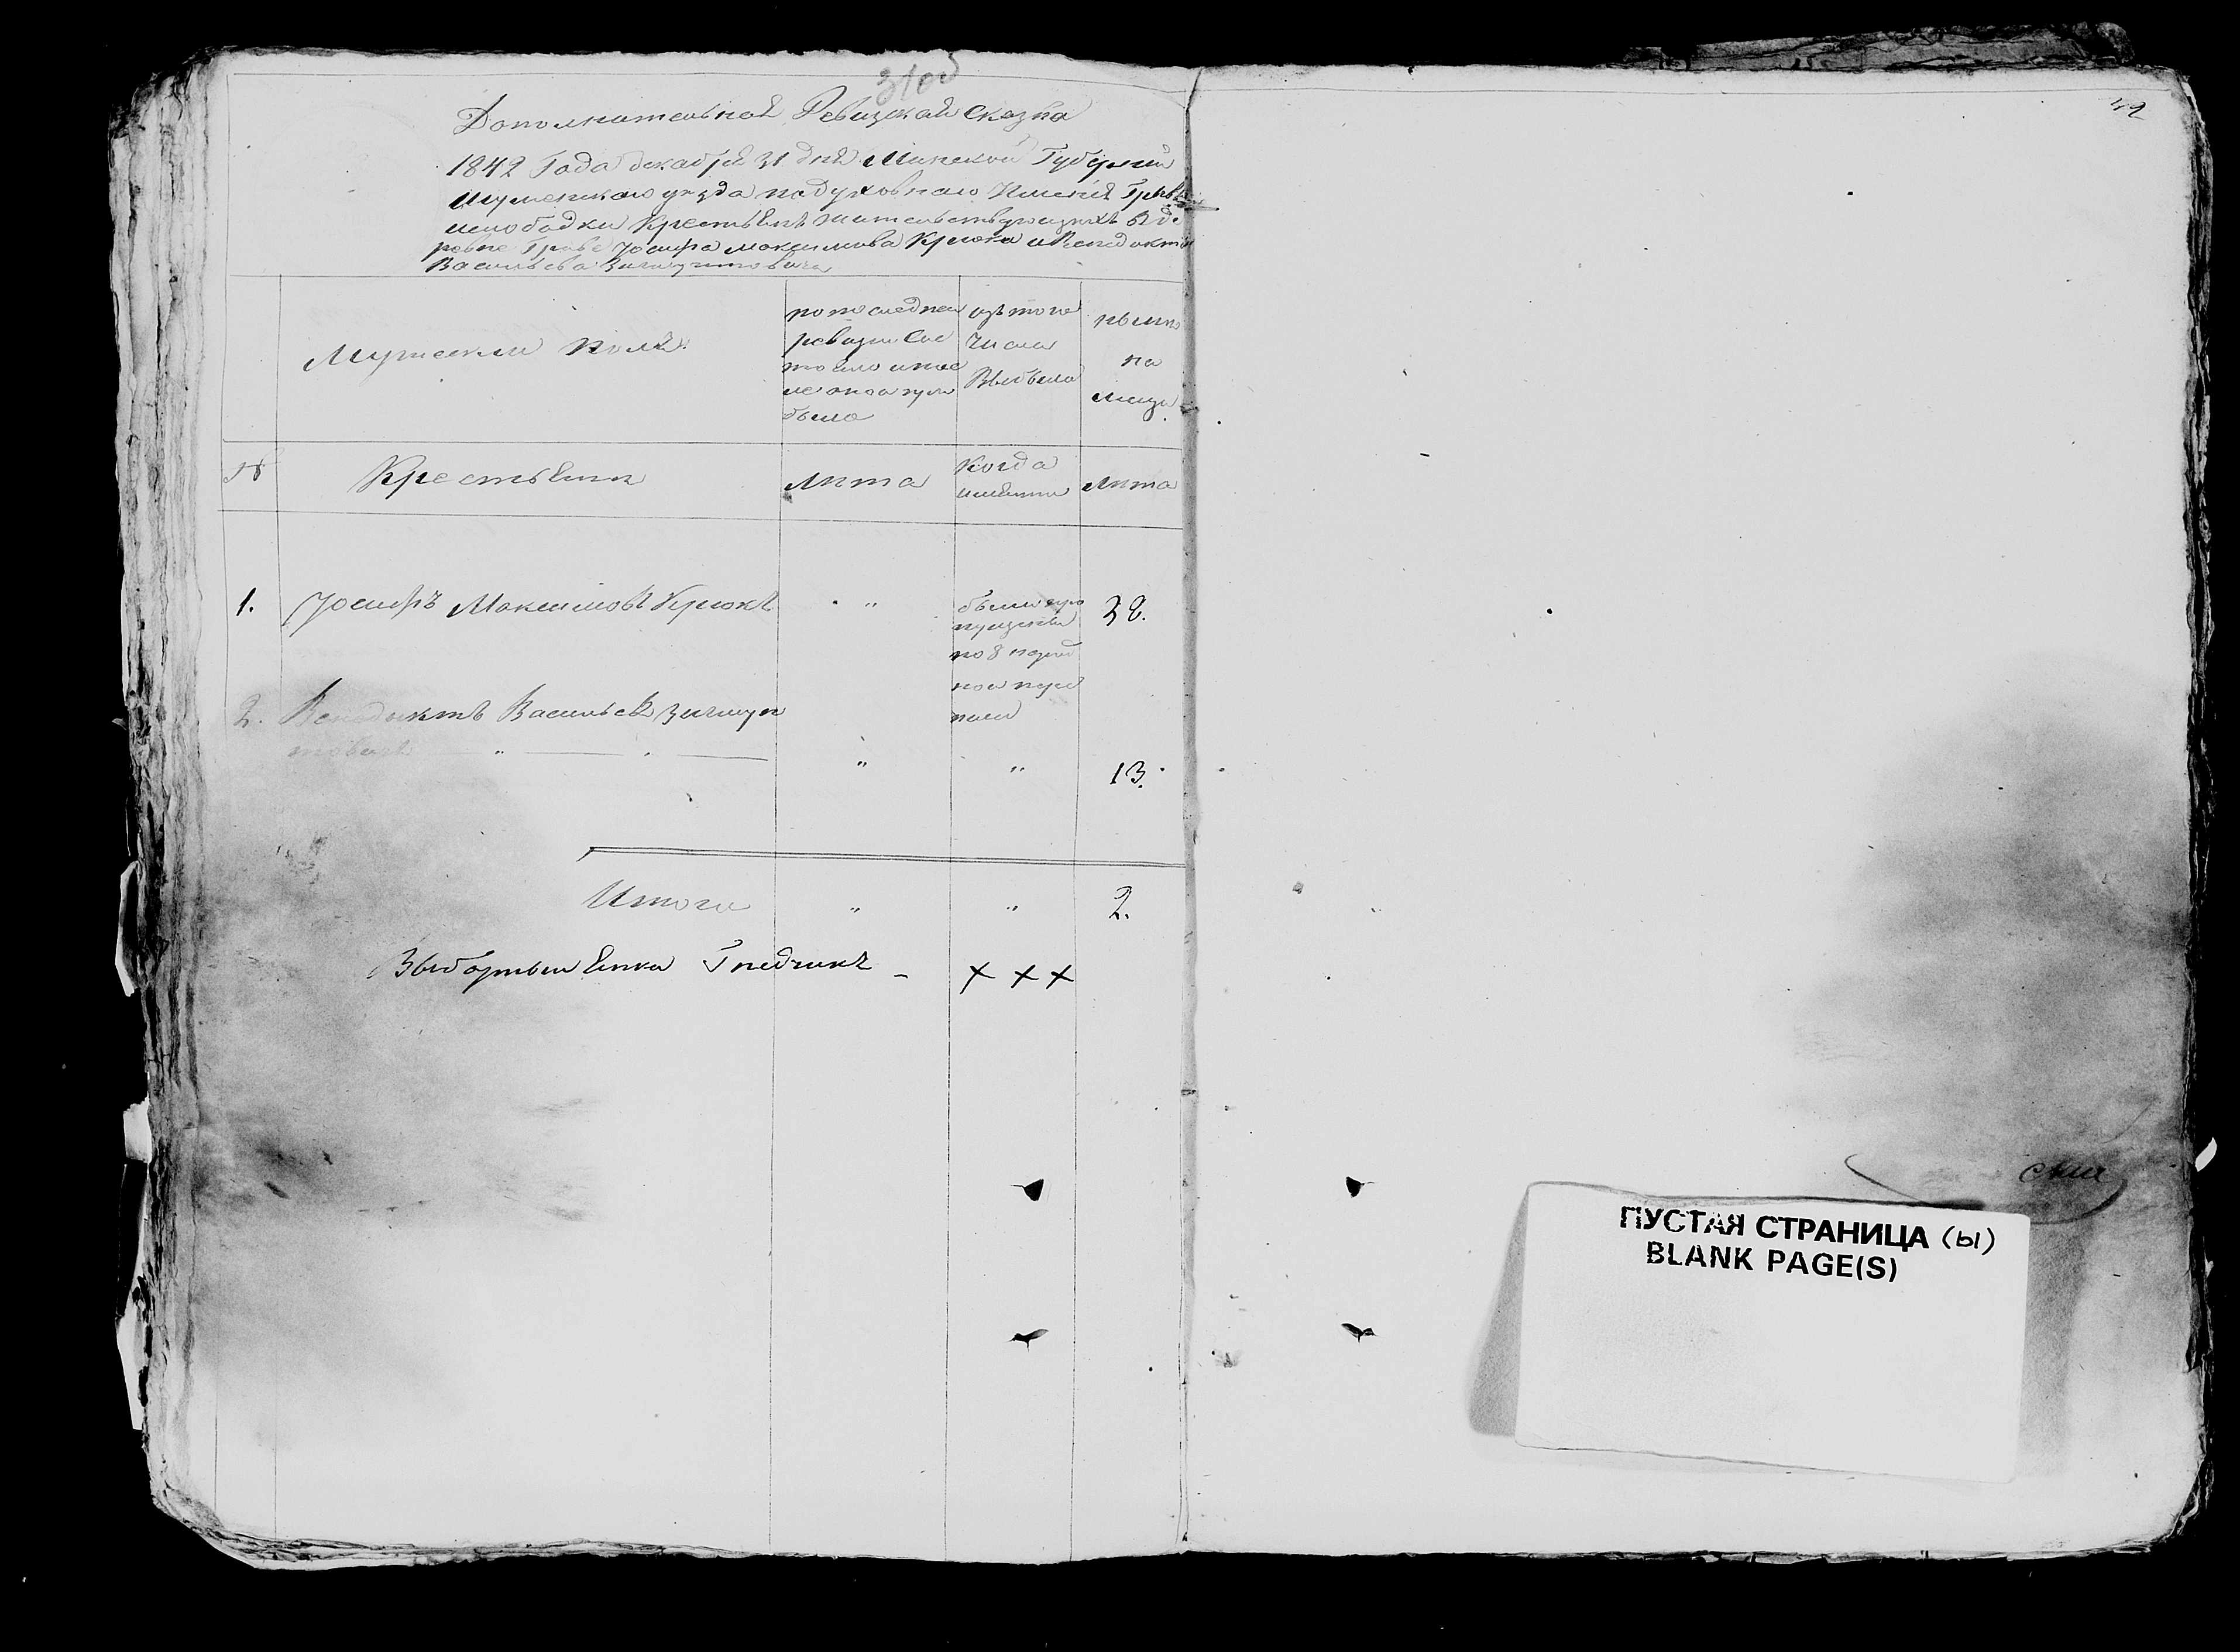 31об
42
Дополнительная Ревизская Сказка
1842 Года декабря 31 дня Минской Губернии
Игуменскаго уезда подуховнаго Имения
слободки Крестьянъ жительствующихъ в де
ревне Гриве Іосифа Максимова Крюка и Венедикта
Васильева
Мужески полъ
по последней
ревизии Сос
тояло и пос
ле оной
было
изъ того
Числа
Выбыло
ныне
на
лицо.
№
Крестьяни
Лета
Когда
именно
Лета
1.
Іосифъ Максимовъ Крюкъ
"
были про
пущены
по 8 народ
ной пере
писи
38.
2.
Венедиктъ Васильев Зигмун
товичъ " "
"
"
13.
Итого
"
"
2.
Выборный Янка Гнедчикъ -
× × ×
ПУСТАЯ СТРАНИЦА (ы)
BLANK PAGE(S)